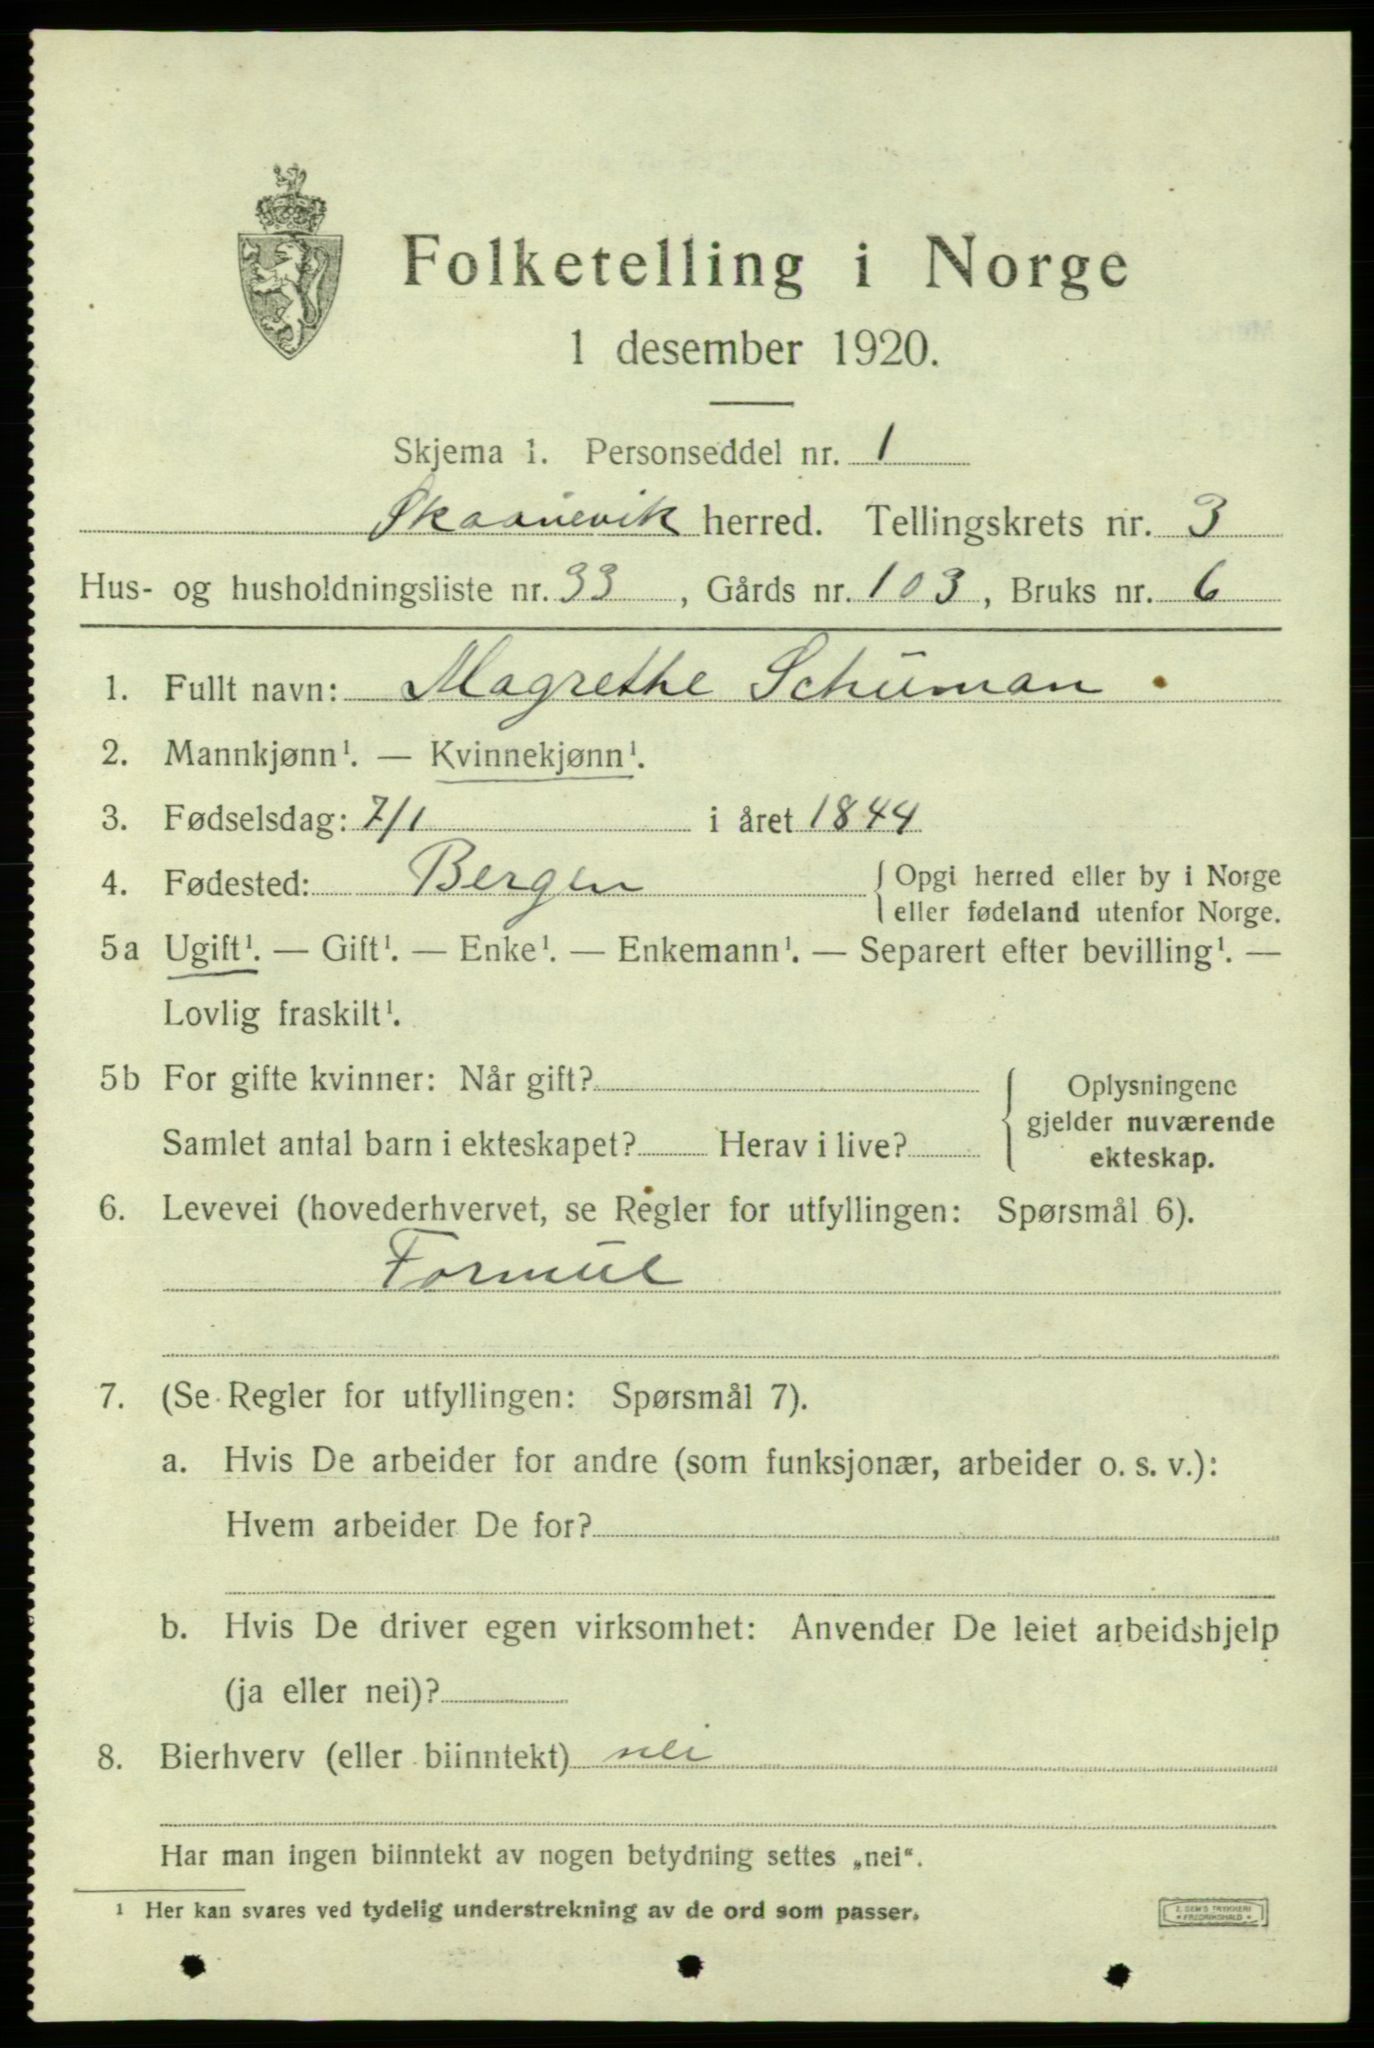 Folketelling i Norge
1 desember 1920.
Skjema 1. Personseddel nr. 1
Skaanevik herred. Tellingskrets nr. 3
Hus- og husholdningsliste nr. 33, Gårds nr. 103, Bruks nr. 6
1. Fullt navn: Magrethe Schuman
2. Mannkjønn¹. — Kvinnekjønn¹.
3. Fødselsdag: 7/1 i året 1844
4. Fødested: Bergen { Opgi herred eller by i Norge
eller fødeland utenfor Norge.
5a Ugift¹. — Gift¹. — Enke¹. — Enkemann¹. — Separert efter bevilling¹. —
Lovlig fraskilt¹.
5b For gifte kvinner: Når gift? { Oplysningene
gjelder nuværende
Samlet antal barn i ekteskapet? Herav i live?
ekteskap.
6. Levevei (hovederhvervet, se Regler for utfyllingen: Spørsmål 6).
Formue
7. (Se Regler for utfyllingen: Spørsmål 7).
a. Hvis De arbeider for andre (som funksjonær, arbeider o. s. v.):
Hvem arbeider De for?
b. Hvis De driver egen virksomhet: Anvender De leiet arbeidshjelp
(ja eller nei)?
8. Bierhverv (eller biinntekt) nei
Har man ingen biinntekt av nogen betydning settes „nei“.
1 Her kan svares ved tydelig understrekning av de ord som passer.
SEM'S TRYKKERI
• FREDRIKSHALD •